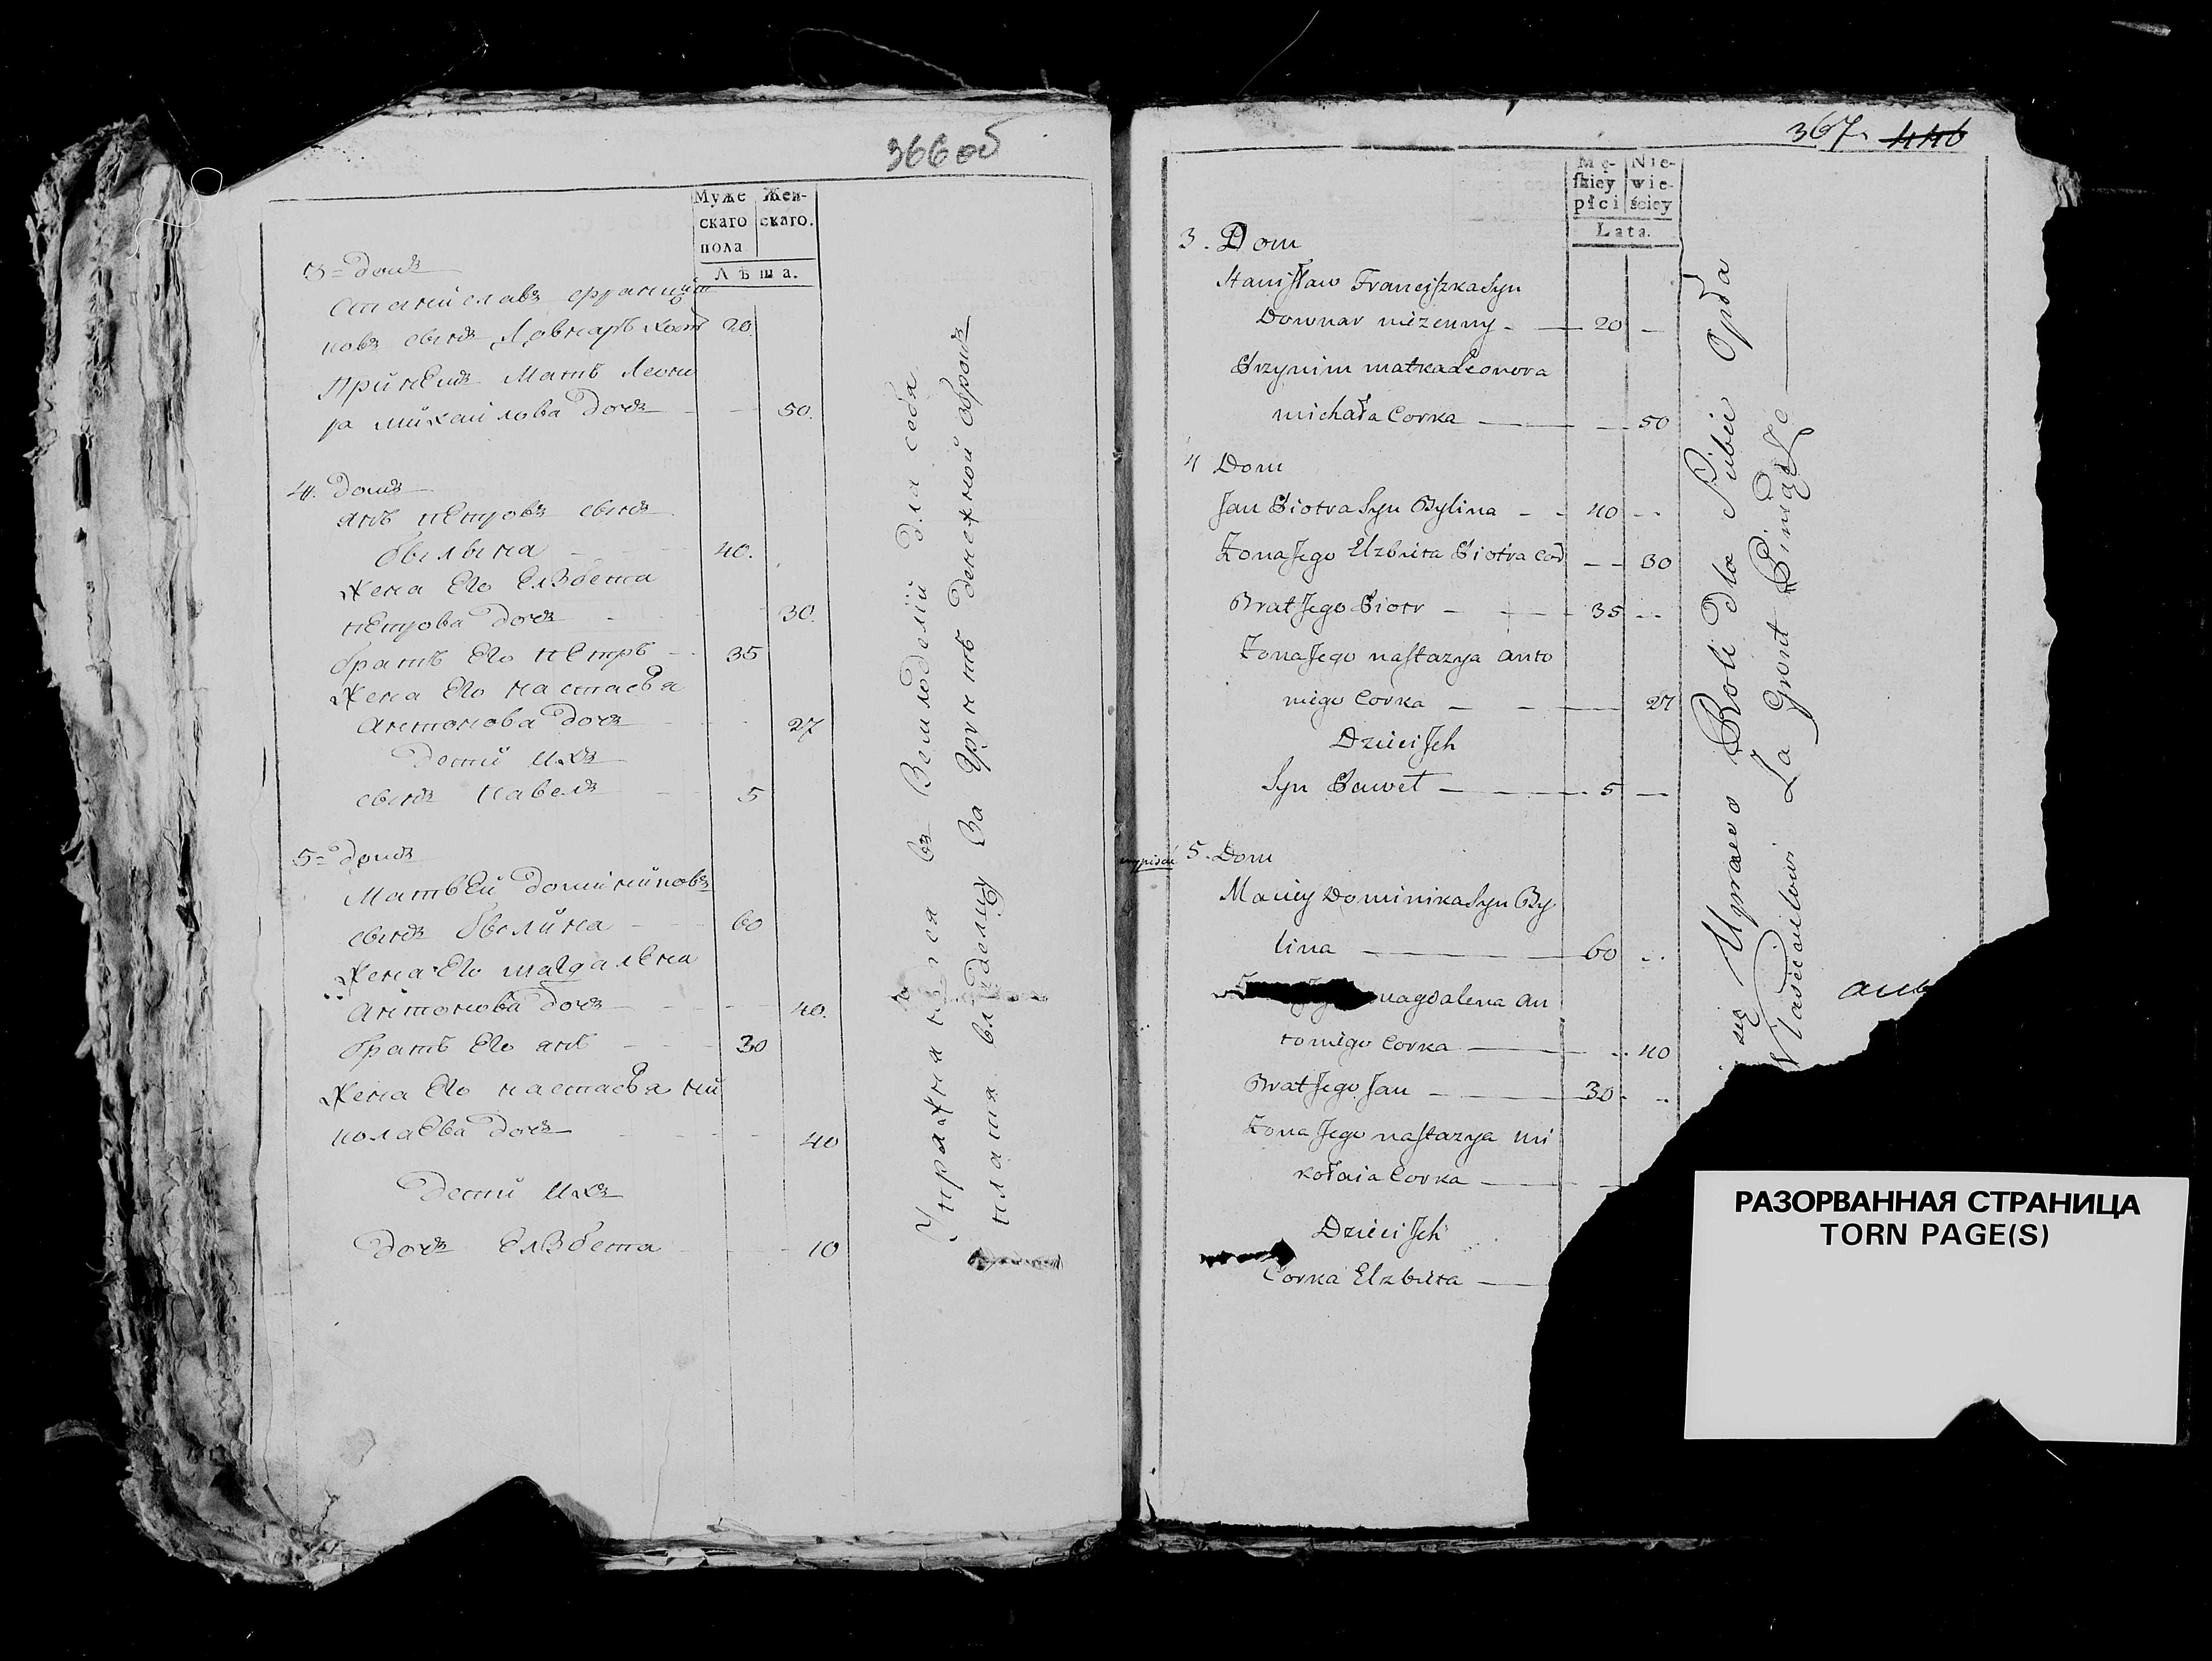 366 об
Муже
скаго
пола
Жен-
скаго.
Лѣта.
3 = Домъ
Станиславъ Франциш
ковъ сынъ Довнаръ 20
При немъ Мать Леоно
ра Михайлова Дочь 50.
4. Домъ
Янъ Петровъ сынъ
Былына 40.
Жена Его Елзбета
Петрова Дочь 30.
братъ Его Петръ 35
Жена Его Настасья
Антонова Дочь 27
Дети ихъ
сынъ Павелъ 5
5 = Домъ
Матвей Доминиковъ
сынъ Былина 60
Жена Его Магдалена
Антонова Дочь 40.
братъ Его Янъ 30
Жена Его Настасья Ни
колаева Дочь 40
Дети ихъ
Дочь Елзбета 10
Упражняется въ Земледелии для себя
платя владельцу за грунтъ денежной оброкъ
367. 446
Mę-
skiey
płci
Nie-
wie-
ściey
Lata.
3. Dom
Stanisław Franciszka Syn
Downar niżenny - 20 -
Przynim matka Leonora
michała Corka - 50
4 Dom
Jan Piotra Syn Bylina - - 40 --
Żona Jego Elzbieta Piotra Cor -- 30
Brat Jego Piotr - - 35 --
Żona Jego nastazya anto
niego Corka - - 27
Dzieci Jch
Syn Paweł - 5 -
wypisać 5. Dom
Maciey Dominika Syn By
lina - 60 --
magdalena an
toniego Corka - 40
Brat Jego Jan - 30 --
Żona Jego nastazya mi
kołaia Corka -
Dzieci Jch
Corka Elzbieta -
się Uprawo Roli Dla Siebie Opła
Właścicielowi Za Gront Piniądze
РАЗОРВАННАЯ СТРАНИЦА
TORN PAGE(S)